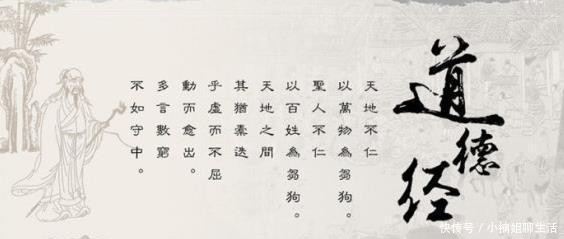 道德经
天地不仁
以萬物為芻狗。
聖人不仁
以百姓為芻狗。
天地之間
其猶橐迭
乎虛而不屈
動而愈出。
多言數窮
不如守中。
快传号 / 小姐聊生活